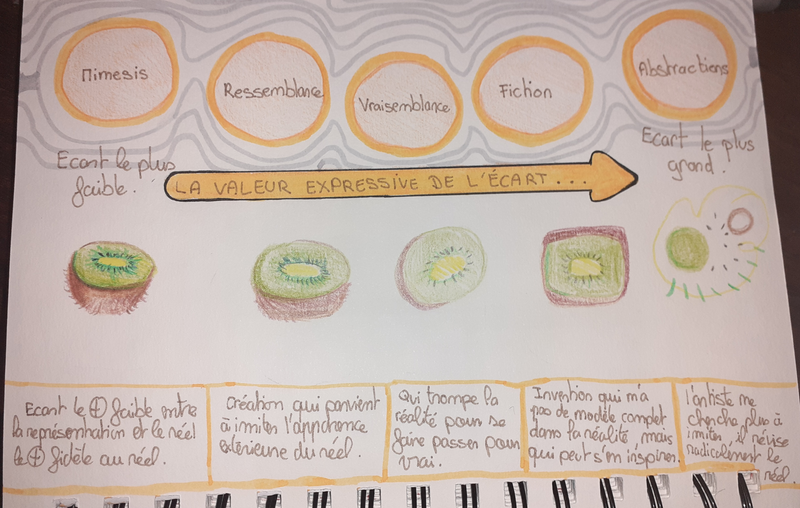 Mimesis
Ressemblance
Vraisemblance
Fiction
Abstractions
Ecart le plus
faible.
LA VALEUR EXPRESSIVE DE L'ÉCART...
Ecart le plus
grand.
Ecart le + faible entre
la représentation et le réel
le + fidèle au réel.
Création qui parvient
à imiter l'apparence
extérieure du réel.
Qui trompe la
réalité pour se
faire passer pour
vrai.
Invention qui n'a
pas de modèle complet
dans la réalité mais
qui peut s'en inspirer.
l'artiste ne
cherche plus à
imiter, il révise
radicalement le
réel.